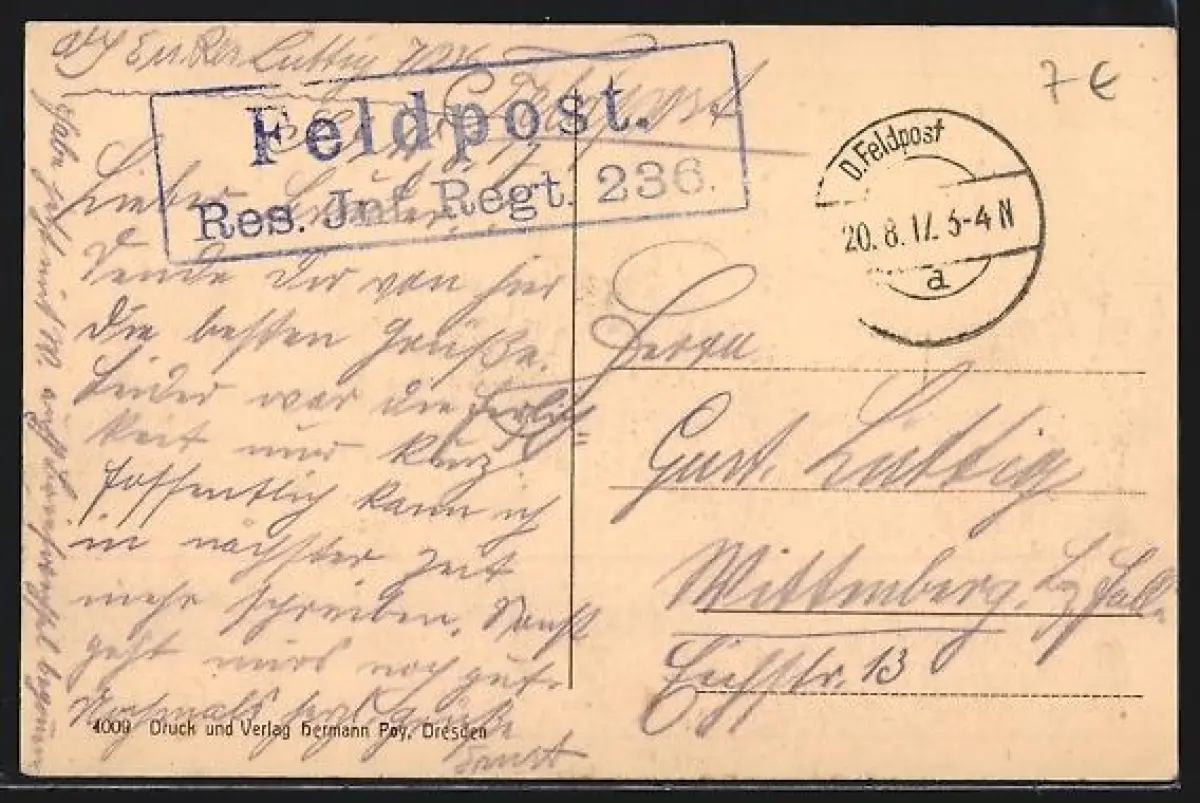 Feldpost
7 €
Feldpost.
Res. Inf. Regt. 236.
D. Feldpost
20.8.17. 3-4 N
a
Lieber
Sende Dir von hier
die besten Grüße.
Leider war die
keit nur kurz.
Hoffentlich kann ich
in nächster Zeit
mehr schreiben. Sonst
geht mirs noch gut.
Nochmals herzl. Grüße
Ernst
Herrn
Gust. Lüttig
Wittenberg, Bz Hall.
13
4009 Druck und Verlag Hermann Poy, Dresden